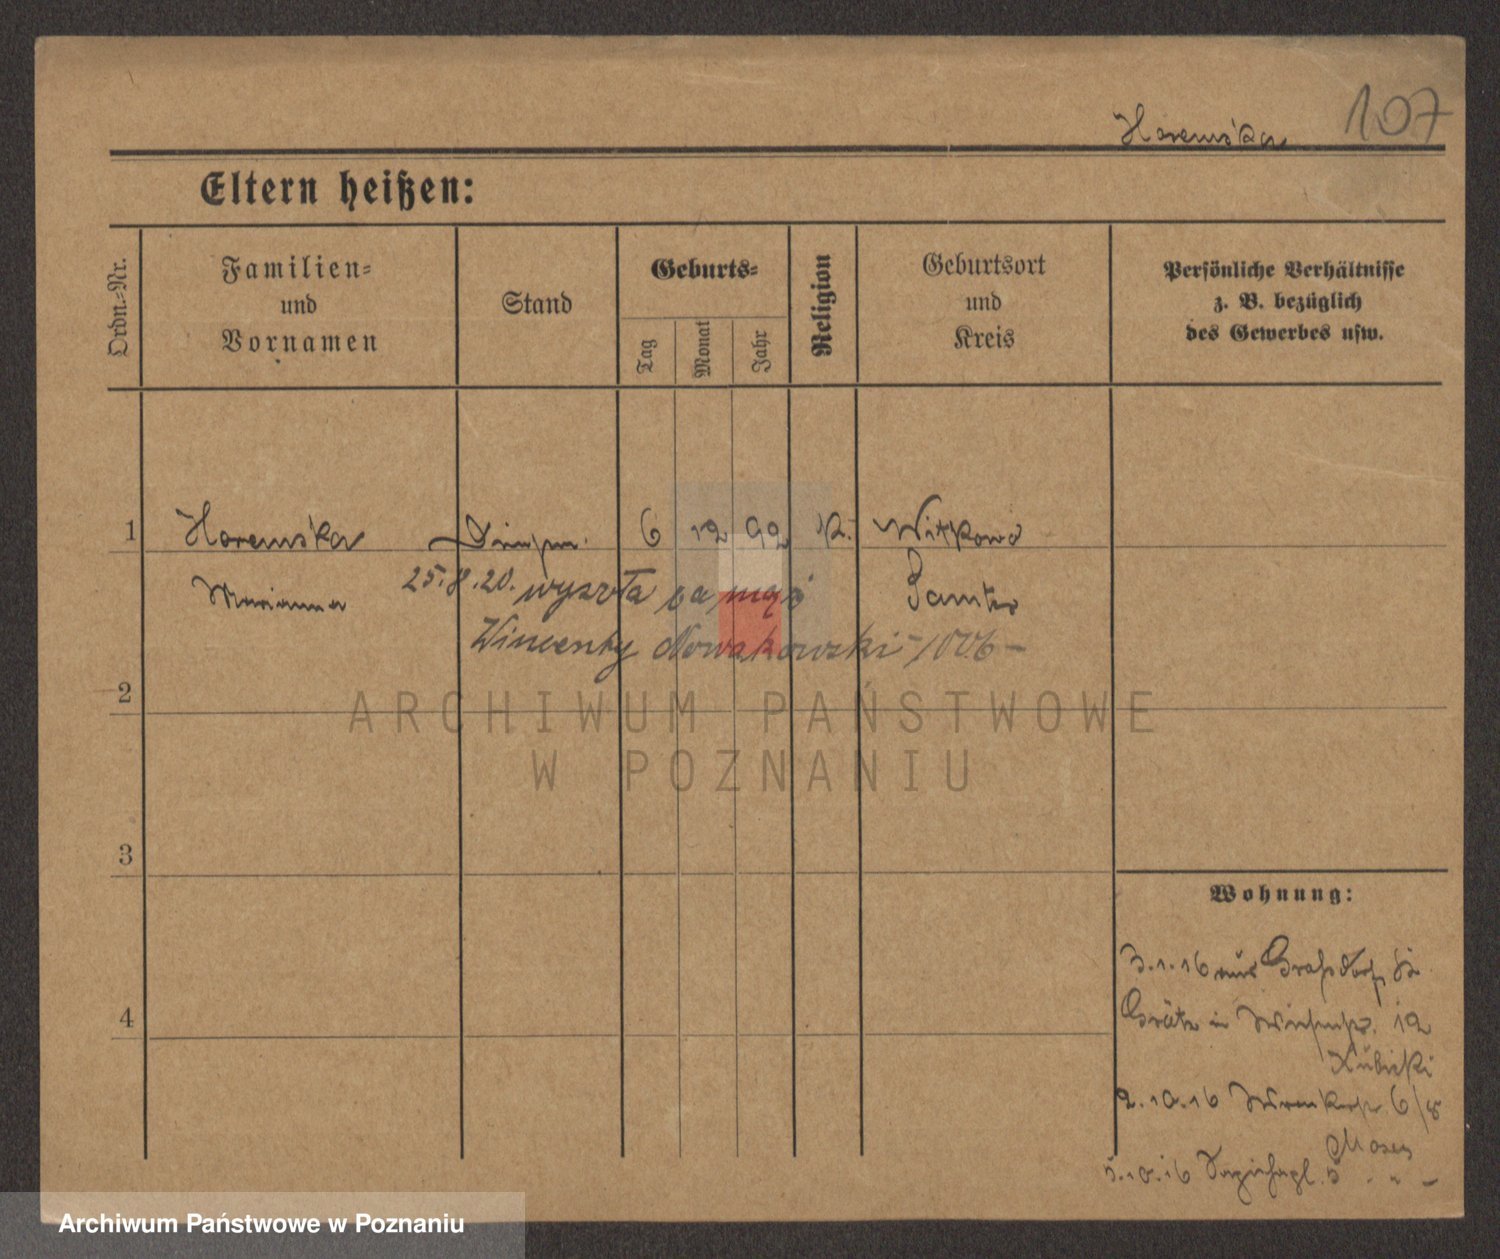 107
Haremska
Eltern heißen:
Ordn.-Nr.
Familien-
und
Vornamen
Stand
Geburts-
Tag
Monat
Jahr
Religion
Geburtsort
und
Kreis
Persönliche Verhältnisse
z. B. bezüglich
des Gewerbes usw.
1 Haremska 6 12 92 K. Witkowo
Marianna Samter
25.8.20. wyszła za mąż
Wincenty Nowakowski
2
ARCHIWUM PAŃSTWOWE
W POZNANIU
3
4
Wohnung:
3.1.16 aus Grafsdorf
Grätz in 12
Kubicki
2.10.16 6/8
Moses
5.10.16 5 " " –
Archiwum Państwowe w Poznaniu